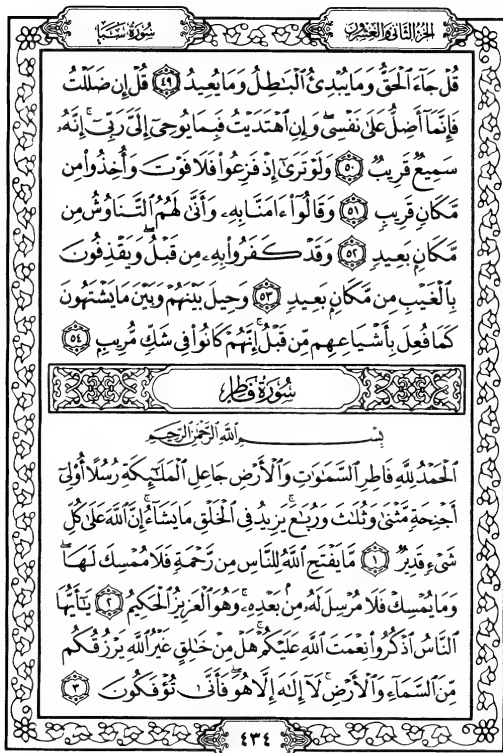 الجزء الثاني والعشرون
سورة سبأ
قُلْ جَآءَ ٱلْحَقُّ وَمَا يُبْدِئُ ٱلْبَٰطِلُ وَمَا يُعِيدُ ٤٩ قُلْ إِن ضَلَلْتُ
فَإِنَّمَآ أَضِلُّ عَلَىٰ نَفْسِى ۖ وَإِنِ ٱهْتَدَيْتُ فَبِمَا يُوحِىٓ إِلَىَّ رَبِّىٓ ۚ إِنَّهُۥ
سَمِيعٌ قَرِيبٌ ٥٠ وَلَوْ تَرَىٰٓ إِذْ فَزِعُوا۟ فَلَا فَوْتَ وَأُخِذُوا۟ مِن
مَّكَانٍ قَرِيبٍ ٥١ وَقَالُوٓا۟ ءَامَنَّا بِهِۦ وَأَنَّىٰ لَهُمُ ٱلتَّنَاوُشُ مِن
مَّكَانٍۭ بَعِيدٍ ٥٢ وَقَدْ كَفَرُوا۟ بِهِۦ مِن قَبْلُ ۖ وَيَقْذِفُونَ
بِٱلْغَيْبِ مِن مَّكَانٍۭ بَعِيدٍ ٥٣ وَحِيلَ بَيْنَهُمْ وَبَيْنَ مَا يَشْتَهُونَ
كَمَا فُعِلَ بِأَشْيَاعِهِم مِّن قَبْلُ ۚ إِنَّهُمْ كَانُوا۟ فِى شَكٍّ مُّرِيبٍۭ ٥٤
سورة فاطر
بِسْمِ ٱللَّهِ ٱلرَّحْمَٰنِ ٱلرَّحِيمِ
ٱلْحَمْدُ لِلَّهِ فَاطِرِ ٱلسَّمَٰوَٰتِ وَٱلْأَرْضِ جَاعِلِ ٱلْمَلَٰٓئِكَةِ رُسُلًا أُو۟لِىٓ
أَجْنِحَةٍ مَّثْنَىٰ وَثُلَٰثَ وَرُبَٰعَ ۚ يَزِيدُ فِى ٱلْخَلْقِ مَا يَشَآءُ ۚ إِنَّ ٱللَّهَ عَلَىٰ كُلِّ
شَىْءٍ قَدِيرٌ ١ مَّا يَفْتَحِ ٱللَّهُ لِلنَّاسِ مِن رَّحْمَةٍ فَلَا مُمْسِكَ لَهَا ۖ
وَمَا يُمْسِكْ فَلَا مُرْسِلَ لَهُۥ مِنۢ بَعْدِهِۦ ۚ وَهُوَ ٱلْعَزِيزُ ٱلْحَكِيمُ ٢ يَٰٓأَيُّهَا
ٱلنَّاسُ ٱذْكُرُوا۟ نِعْمَتَ ٱللَّهِ عَلَيْكُمْ ۚ هَلْ مِنْ خَٰلِقٍ غَيْرُ ٱللَّهِ يَرْزُقُكُم
مِّنَ ٱلسَّمَآءِ وَٱلْأَرْضِ ۚ لَآ إِلَٰهَ إِلَّا هُوَ ۖ فَأَنَّىٰ تُؤْفَكُونَ ٣
٤٣٤